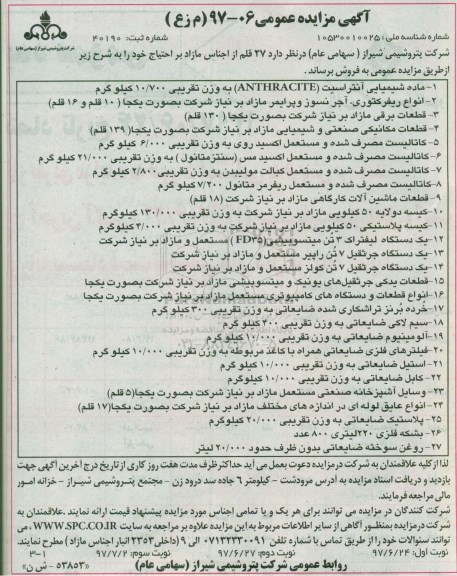 آگهی مزایده عمومی ۰۶-۹۷ (م ز ع)
شرکت پتروشیمی شیراز (سهامی عام)
شماره شناسه ملی: ۱۰۵۳۰۰۱۰۰۲۵۱ شماره ثبت: ۴۰۱۹۰
شرکت پتروشیمی شیراز ( سهامی عام) درنظر دارد ۲۷ قلم از اجناس مازاد بر احتیاج خود را به شرح زیر
ازطریق مزایده عمومی به فروش برساند .
۱-ماده شیمیایی آنتراسیت (ANTHRACITE) به وزن تقریبی ۱۰/۷۰۰ کیلو گرم
۲-انواع ریفرکتوری، آجر نسوز وپرایمر مازاد بر نیاز شرکت بصورت یکجا ( ۱۰ قلم و ۱۶ قلم)
۳-قطعات برقی مازاد بر نیاز شرکت بصورت یکجا ( ۱۳۰ قلم)
۴- قطعات مکانیکی صنعتی و شیمیایی مازاد بر نیاز شرکت بصورت یکجا( ۱۳۹ قلم)
۵- کاتالیست مصرف شده و مستعمل اکسید روی به وزن تقریبی ۶/۰۰۰ کیلو گرم
۶- کاتالیست مصرف شده و مستعمل اکسید مس (سنتزمتانول ) به وزن تقریبی ۲۱/۰۰۰ کیلو گرم
۷- کاتالیست مصرف شده و مستعمل کبالت مولیبدن به وزن تقریبی ۲/۸۰۰ کیلو گرم
۸-کاتالیست مصرف شده و مستعمل ریفرمر متانول ۷/۲۰۰ کیلو گرم
۹- قطعات ماشین آلات کارگاهی مازاد بر نیاز شرکت (۱۸ قلم)
۱۰-کیسه دولایه ۵۰ کیلویی مازاد بر نیاز شرکت به وزن تقریبی ۱۳۰/۰۰۰ کیلوگرم
۱۱-کیسه پلاستیکی ۵۰ کیلویی مازاد بر نیاز شرکت به وزن تقریبی ۳/۰۰۰ کیلوگرم
۱۲-یک دستگاه لیفتراک ۳ تن میتسوبیشی (FD۳۵) مستعمل و مازاد بر نیاز شرکت
۱۳-یک دستگاه جرثقیل ۷ تن راپیر مستعمل و مازاد بر نیاز شرکت
۱۴-یک دستگاه جرثقیل ۷ تن کولز مستعمل و مازاد بر نیاز شرکت
۱۵-قطعات یدکی جرثقیل‌های یونیک و میتسوبیشی مازاد بر نیاز شرکت بصورت یکجا
۱۶-انواع قطعات و دستگاه های کامپیوتری مستعمل مازاد بر نیاز شرکت بصورت یکجا
۱۷- خرده بُرنز تراشکاری شده ضایعاتی به وزن تقریبی ۳۰۰ کیلو گرم
۱۸- سیم لاکی ضایعاتی به وزن تقریبی ۴۰۰ کیلو گرم
۱۹- آلومینیوم ضایعاتی به وزن تقریبی ۱۰/۰۰۰ کیلو گرم
۲۰- فیلترهای فلزی ضایعاتی همراه با کاغذ مربوطه به وزن تقریبی ۱۰/۰۰۰ کیلو گرم
۲۱- استیل ضایعاتی به وزن تقریبی ۱۰/۰۰۰ کیلو گرم
۲۲- کابل ضایعاتی به وزن تقریبی ۱۰/۰۰۰ کیلوگرم
۲۳- وسایل آشپزخانه صنعتی مستعمل مازاد بر نیاز شرکت بصورت یکجا(۵ قلم)
۲۴- انواع عایق لوله ای در اندازه های مختلف مازاد بر نیاز شرکت بصورت یکجا(۱۷ قلم)
۲۵- پلاستیک ضایعاتی به وزن تقریبی ۲۰/۰۰۰ کیلوگرم
۲۶- بشکه فلزی ۲۲۰لیتری ۸۰۰ عدد
۲۷- روغن سوخته ضایعاتی بدون ظرف حدود ۲۰/۰۰۰ لیتر
لذا ازکلیه علاقمندان به شرکت درمزایده دعوت بعمل می آید حداکثر ظرف مدت هفت روز کاری از تاریخ درج آخرین آگهی جهت
بازدید و دریافت اسناد مزایده به آدرس مرودشت - کیلومتر ۶ جاده سد درود زن - مجتمع پتروشیمی شیراز - خزانه امور
مالی مراجعه فرمایند.
شرکت کنندگان در مزایده می توانند برای هر یک و یا تمامی اجناس مورد مزایده پیشنهاد قیمت ارائه نمایند .علاقمندان به
شرکت درمزایده بمنظور آگاهی از سایر اطلاعات مربوط به این مزایده علاوه بر مراجعه به سایت WWW.SPC.CO.IR ، می
توانند سئوالات خود را از طریق تماس با شماره تلفن ۰۷۱۳۲۳۳۰۰۹۱ الی ۹ (داخلی ۲۳۵۳ انبار اجناس مازاد) مطرح نمایند.
نوبت اول: ۹۷/۶/۲۴ نوبت دوم: ۹۷/۶/۲۷ نوبت سوم: ۹۷/۷/۲ ۳-۱
روابط عمومی شرکت پتروشیمی شیراز (سهامی عام) «۵۳۸۵۳ - ش ن»